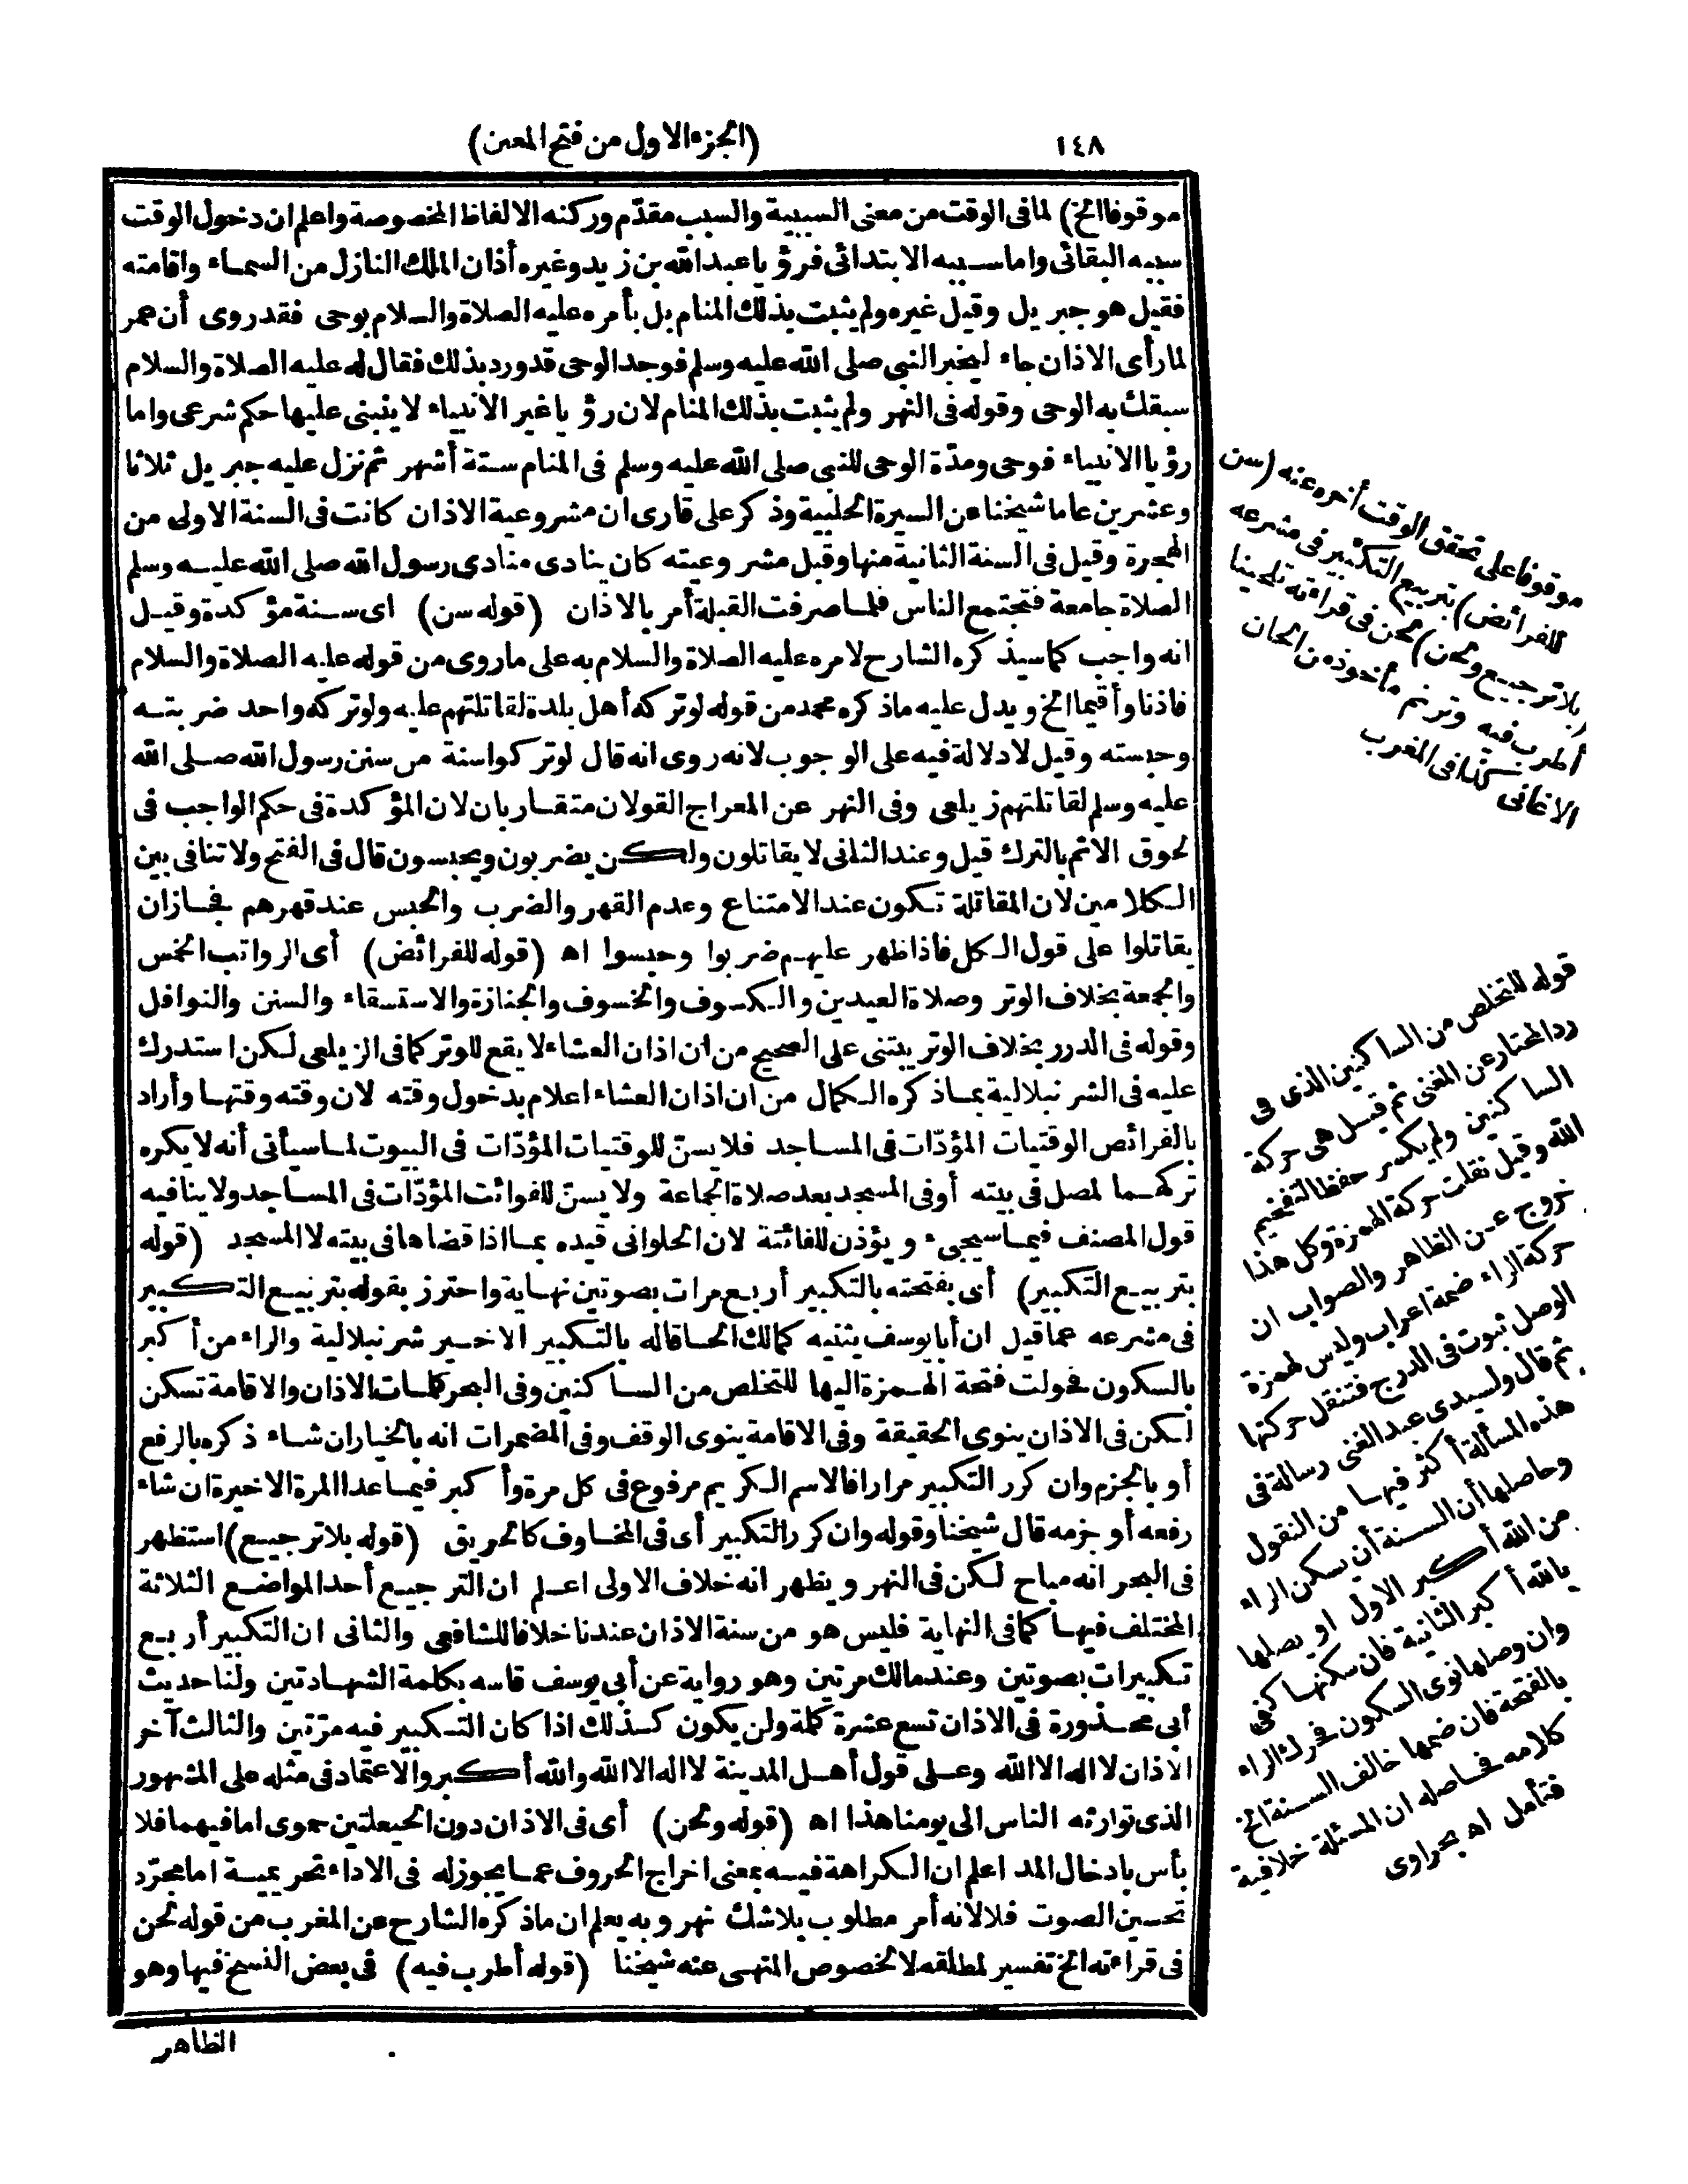 ١٤٨
(الجزء الاول من فتح المعين)
موقوفا الخ) لما فى الوقت من معنى السببية والسبب مقدّم وركنه الالفاظ المخصوصة واعلم ان دخول الوقت
سببه البقائى واما سببه الابتدائى فرؤيا عبد الله بن زيد وغيره أذان الملك النازل من السماء واقامته
فقيل هو جبريل وقيل غيره ولم يثبت بذلك المنام بل بأمره عليه الصلاة والسلام بوحى فقد روى أن عمر
لما رأى الاذان جاء ليخبر النبى صلى الله عليه وسلم فوجد الوحى قد ورد بذلك فقال له عليه الصلاة والسلام
سبقك به الوحى وقوله فى النهر ولم يثبت بذلك المنام لان رؤيا غير الانبياء لا ينبنى عليها حكم شرعى واما
رؤيا الانبياء فوحى ومدّة الوحى للنبى صلى الله عليه وسلم فى المنام ستة أشهر ثم نزل عليه جبريل ثلاثا
وعشرين عاما شيخنا عن السيرة الحلبية وذكر على قارى ان مشروعية الاذان كانت فى السنة الاولى من
الهجرة وقيل فى السنة الثانية منها وقبل مشروعيته كان ينادى منادى رسول الله صلى الله عليه وسلم
الصلاة جامعة فتجتمع الناس فلما صرفت القبلة أمر بالاذان (قوله سن) اى سنة مؤكدة وقيل
انه واجب كما سيذكره الشارح لامره عليه الصلاة والسلام به على ما روى من قوله عليه الصلاة والسلام
فاذنا وأقيما الخ ويدل عليه ماذكره محمد من قوله لو تركه أهل بلدة لقاتلتهم عليه ولو تركه واحد ضربته
وحبسته وقيل لا دلالة فيه على الوجوب لانه روى انه قال لو تركوا سنة من سنن رسول الله صلى الله
عليه وسلم لقاتلتهم زيلعى وفى النهر عن المعراج القولان متقاربان لان المؤكدة فى حكم الواجب فى
لحوق الاثم بالترك قيل وعند الثانى لا يقاتلون ولكن يضربون ويحبسون قال فى الفتح ولا تنافى بين
الكلامين لان المقاتلة تكون عند الامتناع وعدم القهر والضرب والحبس عند قهرهم فجاز ان
يقاتلوا على قول الكل فاذا ظهر عليهم ضربوا وحبسوا اه (قوله للفرائض) أى الرواتب الخمس
والجمعة بخلاف الوتر وصلاة العيدين والكسوف والخسوف والجنازة والاستسقاء والسنن والنوافل
وقوله فى الدرر بخلاف الوتر يبتنى على الصحيح من ان اذان العشاء لا يقع للوتر كما فى الزيلعى لكن استدرك
عليه فى الشرنبلالية بما ذكره الكمال من ان اذان العشاء اعلام بدخول وقته لان وقته وقتها وأراد
بالفرائص الوقتيات المؤدّات فى المساجد فلا يسنّ للوقتيات المؤدّات فى البيوت لما سيأتى أنه لا يكره
تركهما لمصل فى بيته أو فى المسجد بعد صلاة الجماعة ولا يسنّ للفوائت المؤدّات فى المساجد ولا ينافيه
قول المصنف فيما سيجىء ويؤذن للفائتة لان الحلوانى قيده بما اذا قضاها فى بيته لا المسجد (قوله
بتربيع التكبير) أى بفتحته بالتكبير أربع مرات بصوتين نهاية واحترز بقوله بتربيع التكبير
فى مشرعه عما قيل ان أبا يوسف يثنيه كمالك الحاقاله بالتكبير الاخير شرنبلالية والراء من أكبر
بالسكون فحولت فتحة الهمزة اليها للتخلص من الساكنين وفى البحر كلمات الاذان والاقامة تسكن
لكن فى الاذان ينوى الحقيقة وفى الاقامة ينوى الوقف وفى المضمرات انه بالخيار ان شاء ذكره بالرفع
أو بالجزم وان كرر التكبير مرارا فالاسم الكريم مرفوع فى كل مرة وأكبر فيما عدا المرة الاخيرة ان شاء
رفعه أو جزمه قال شيخنا وقوله وان كرر التكبير أى فى المخاوف كالحريق (قوله بلا ترجيع) استظهر
فى البحر انه مباح لكن فى النهر ويظهر انه خلاف الاولى اعلم ان الترجيع أحد المواضع الثلاثة
المختلف فيها كما فى النهاية فليس هو من سنة الاذان عندنا خلافا للشافعى والثانى ان التكبير أربع
تكبيرات بصوتين وعند مالك مرتين وهو رواية عن أبى يوسف قاسه بكلمة الشهادتين ولنا حديث
أبى محذورة فى الاذان تسع عشرة كلمة ولن يكون كذلك اذا كان التكبير فيه مرّتين والثالث آخر
الاذان لا اله الا الله وعلى قول أهل المدينة لا اله الا الله والله أكبر والاعتماد فى مثله على المشهور
الذى توارثه الناس الى يومنا هذا اه (قوله ولحن) أى فى الاذان دون الحيعلتين حموى اما فيهما فلا
بأس بادخال المد اعلم ان الكراهة فيه بمعنى اخراج الحروف عما يجوز له فى الاداء تحريمية اما مجرّد
تحسين الصوت فلا لانه أمر مطلوب بلا شك نهر وبه يعلم ان ما ذكره الشارح عن المغرب من قوله لحن
فى قراءته الخ تفسير لمطلقه لا لخصوص المنهى عنه شيخنا (قوله أطرب فيه) فى بعض النسخ فيها وهو
الظاهر
موقوفا على تحقق الوقت أخره عنه (سن
للفرائض) بتربيع التكبير فى مشرعه
(بلا ترجيع ولحن) لحن فى قراءته تلحينا
أطرب فيه وترنم مأخوذ من الحان
الاغانى كذا فى المغرب
قوله للتخلص من الساكنين الذى فى
رد المحتار عن المغنى ثم قيل هى حركة
الساكنين ولم يكسر حفظا لتفخيم
الله وقيل نقلت حركة الهمزة وكل هذا
خروج عن الظاهر والصواب ان
حركة الراء ضمة اعراب وليس لهمزة
الوصل ثبوت فى الدرج فتنقل حركتها
ثم قال ولسيدى عبد الغنى رسالة فى
هذه المسألة أكثر فيها من النقول
وحاصلها أن السنة أن يسكن الراء
من الله أكبر الاول او يصلها
بالله أكبر الثانية فان سكنها كفى
وان وصلها نوى السكون فحرك الراء
بالفتحة فان ضمها خالف السنة الخ
كلامه فحاصله ان المسئلة خلافية
فتأمل اه بحراوى